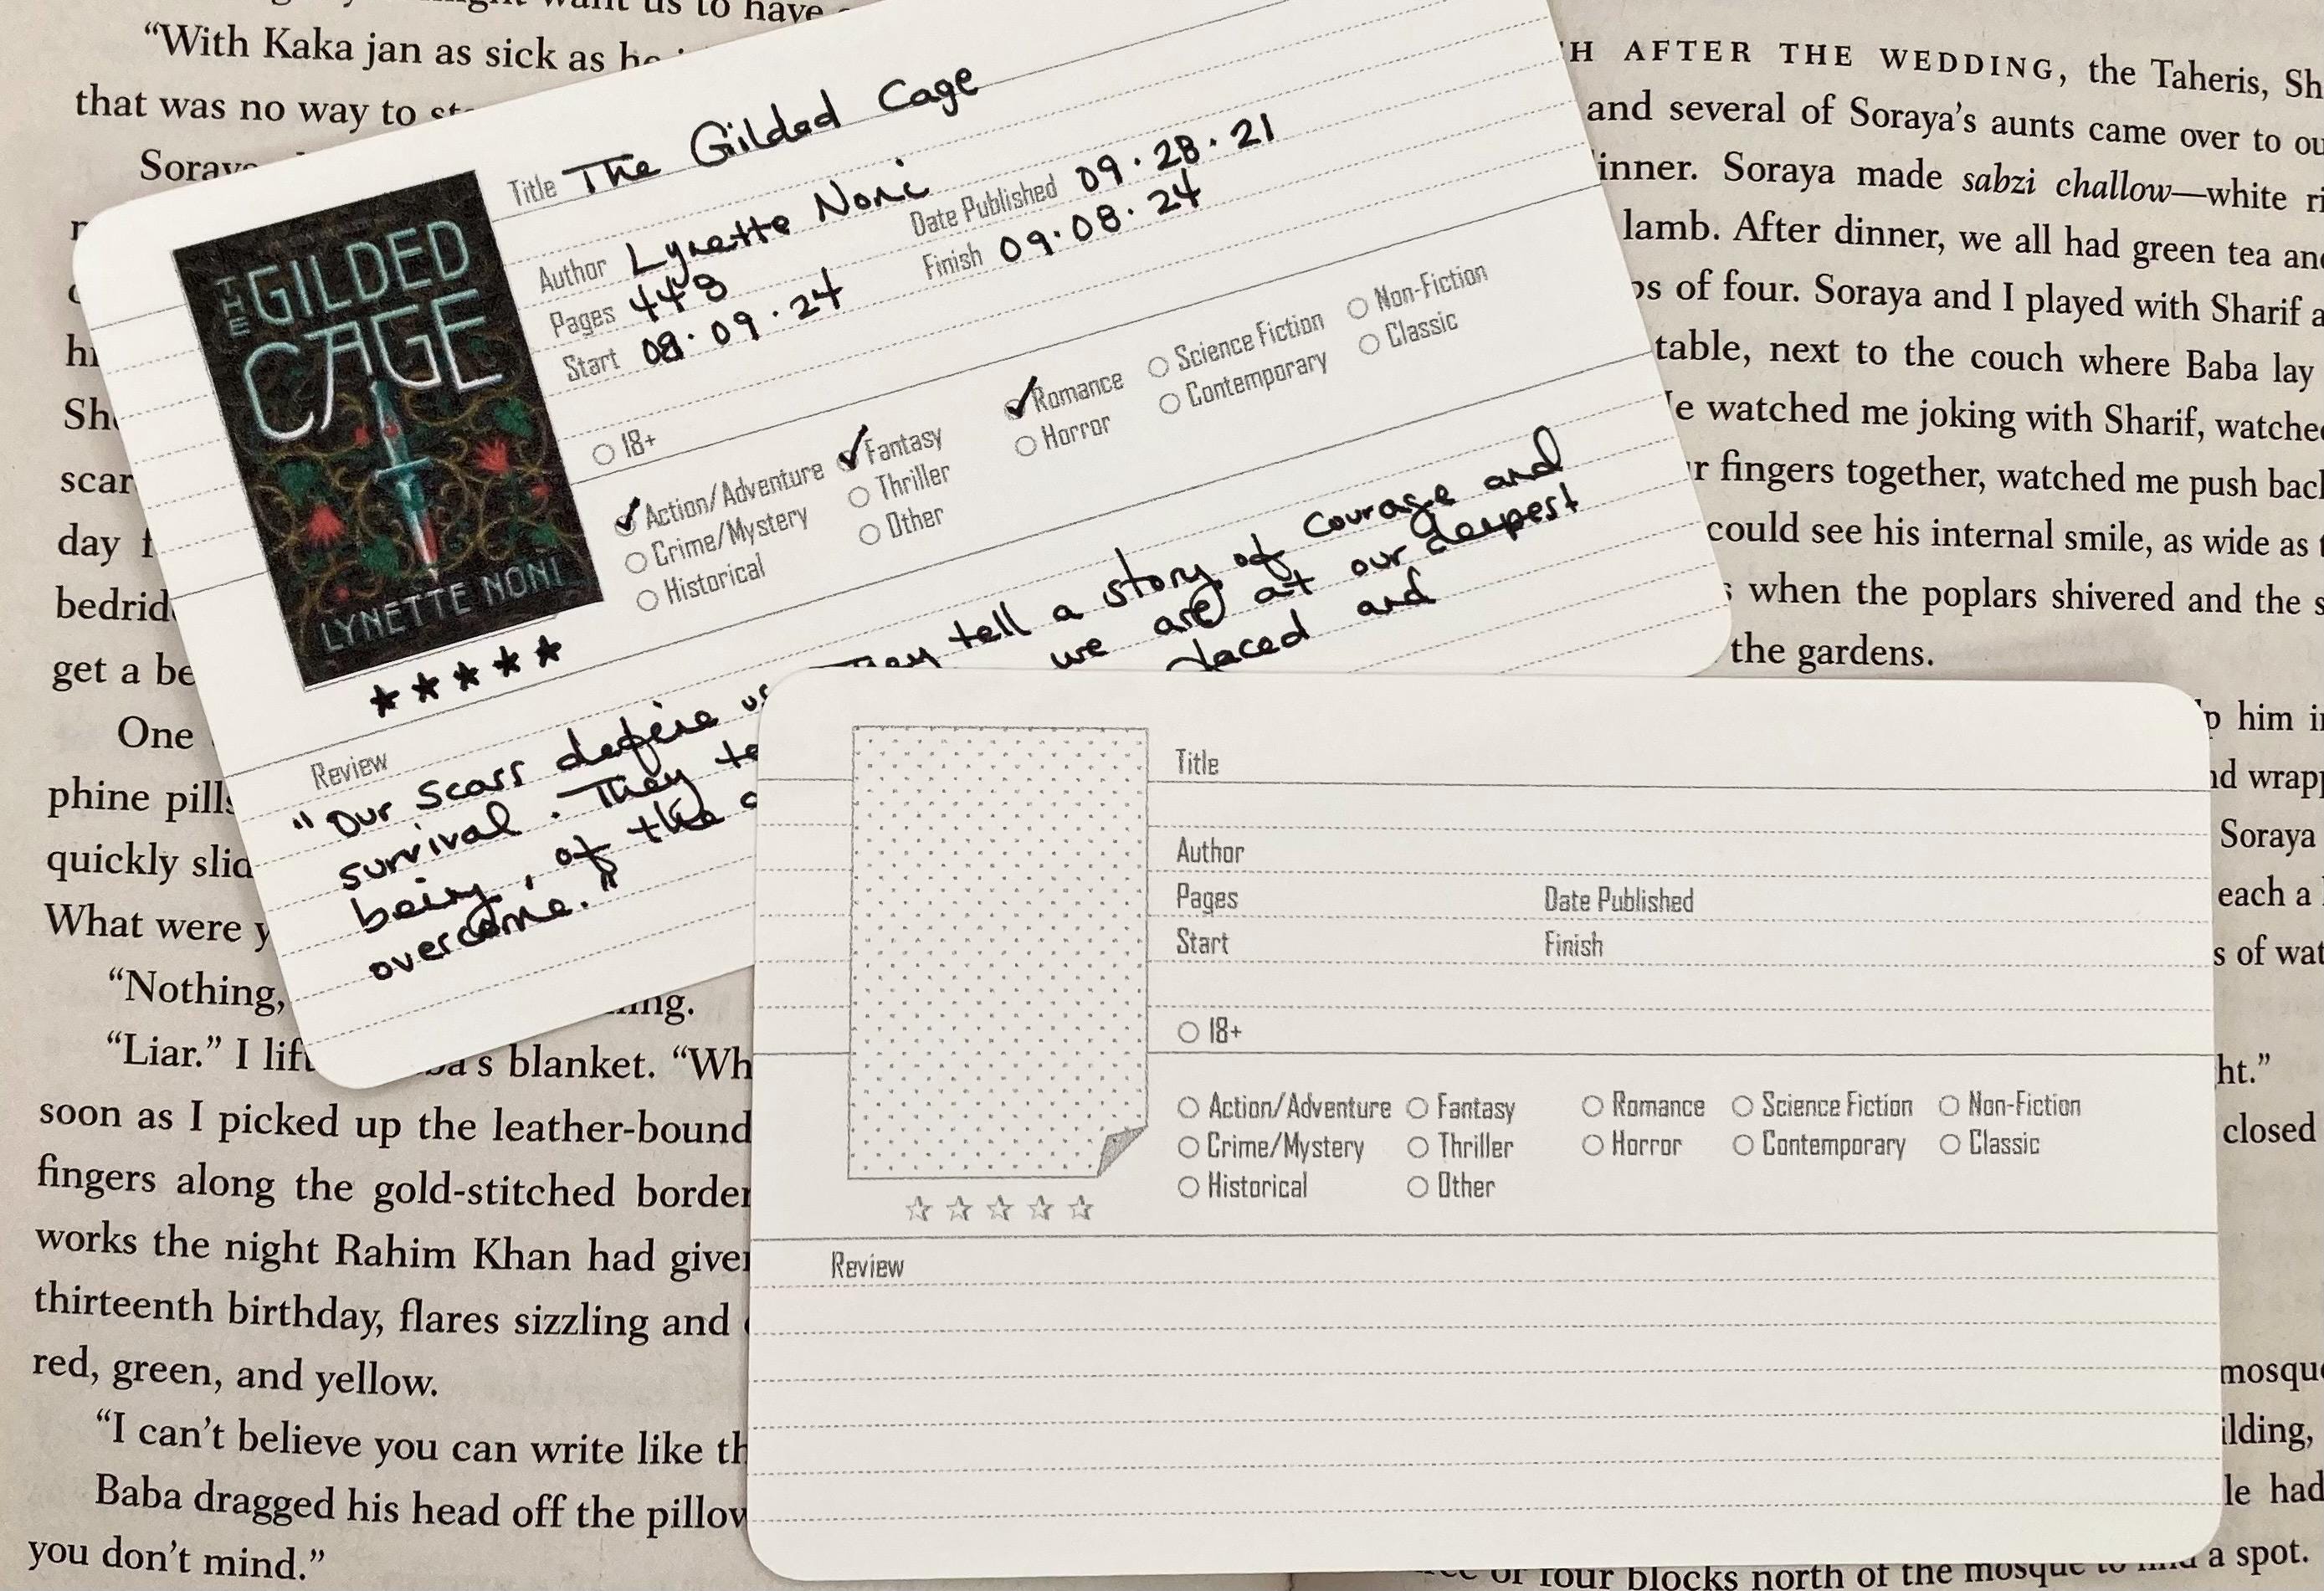 want us to have
“With Kaka jan as sick as he
that was no way to
Soraya
hi
She
scar
day f
bedrid
get a be
One
phine pills
quickly slid
What were y
“Nothing,
ing.
“Liar.” I lift
's blanket. “Wh
soon as I picked up the leather-bound
fingers along the gold-stitched border
works the night Rahim Khan had given
thirteenth birthday, flares sizzling and
red, green, and yellow.
“I can’t believe you can write like th
Baba dragged his head off the pillow
you don’t mind.”
THE GILDED
CAGE
LYNETTE NONI
Title The Gilded Cage
Author Lynette Noni
Pages 448 Date Published 09.28.21
Start 08.09.24 Finish 09.08.24
18+
Action/Adventure Fantasy Romance Science Fiction Non-Fiction
Crime/Mystery Thriller Horror Contemporary Classic
Historical Other
★★★★★
Review
"Our scars define us They tell a story of courage and
survival. They te we are at our deepest
being, of the and
overcome."
Title
Author
Pages Date Published
Start Finish
18+
Action/Adventure Fantasy Romance Science Fiction Non-Fiction
Crime/Mystery Thriller Horror Contemporary Classic
Historical Other
☆☆☆☆☆
Review
H AFTER THE WEDDING, the Taheris, Sh
and several of Soraya’s aunts came over to ou
inner. Soraya made sabzi challow—white ri
lamb. After dinner, we all had green tea and
ps of four. Soraya and I played with Sharif a
table, next to the couch where Baba lay
He watched me joking with Sharif, watched
r fingers together, watched me push back
could see his internal smile, as wide as t
when the poplars shivered and the s
the gardens.
p him in
nd wrapp
Soraya
each a
s of wat
ht.”
closed
mosque
ilding,
le had
a spot.
or four blocks north of the mosque to